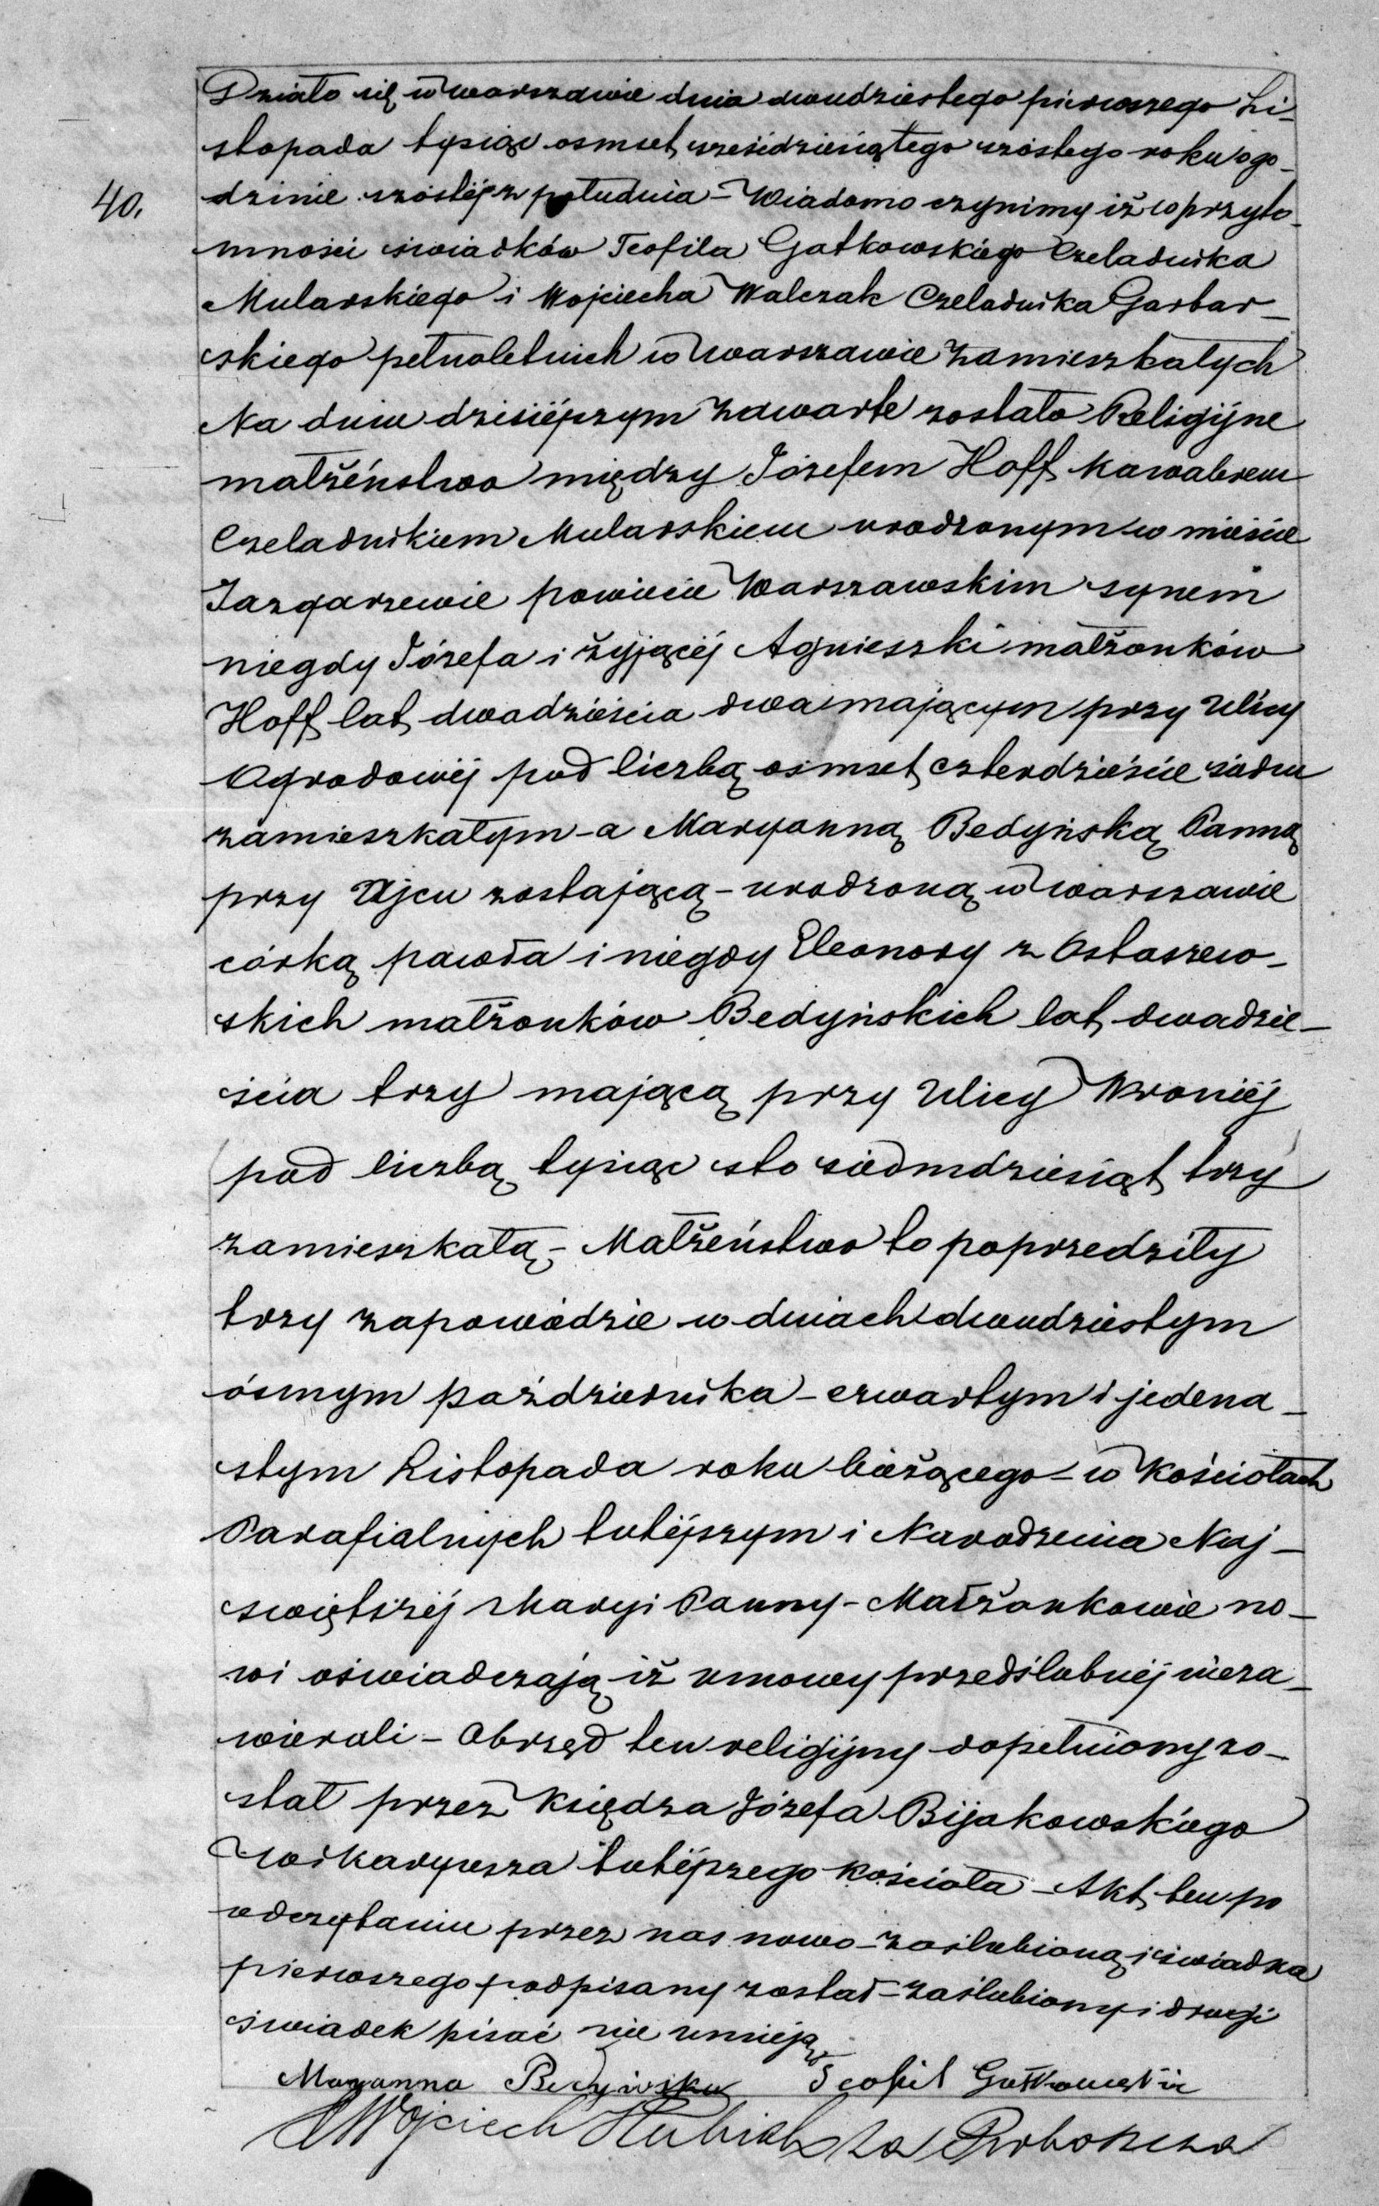 Działo się w Warszawie dnia dwudziestego pierwszego Li-
stopada tysiąc osmset sześćdziesiątego szóstego roku o go-
40.
dzinie szóstéj z południa - Wiadomo czynimy iż w przyto-
mności świadków Teofila Gatkowskiego Czeladnika
Mularskiego i Wojciecha Walczak Czeladnika Garbar-
skiego pełnoletnich w Warszawie zamieszkałych
Na dniu dzisiéjszym zawarte zostało Religijne
małżeństwo między Józefem Hoff kawalerem
Czeladnikiem Mularskiem urodzonym w mieście
Jazgarzewie powiecie Warszawskim synem
niegdy Józefa i żyjącéj Agnieszki małżonków
Hoff lat dwadzieścia dwa mającym przy Ulicy
Ogrodowéj pod liczbą osmset czterdzieście siedm
zamieszkałym - a Maryanną Bedyńską Panną
przy Ojcu zostającą - urodzoną w Warszawie
córką Pawła i niegdy Eleonory z Ostaszew-
skich małżonków Bedyńskich lat dwadzie-
ścia trzy mającą przy Ulicy Wroniéj
pod liczbą tysiąc sto siedmdziesiąt trzy
zamieszkałą - Małżeństwo to poprzedziły
trzy zapowiedzie w dniach dwudziestym
ósmym października - czwartym i jedena-
stym Listopada roku bieżącego - w Kościołach
Parafialnych tutéjszym i Narodzenia Naj-
świętszéj Maryi Panny - Małżonkowie no-
wi oświadczają iż umowy przedślubnéj nieza-
wierali - Obrzęd ten religijny dopełniony zo-
stał przez Księdza Józefa Bijakowskiego
Wikaryusza tutéjszego kościoła - Akt ten po
odczytaniu przez nas nowo-zaślubioną i świadka
pierwszego podpisany został - zaślubiony i drugi
świadek pisać nie umieją
Maryanna Bedyńska Teofil Gatkowski
Wojciech za Proboszcza